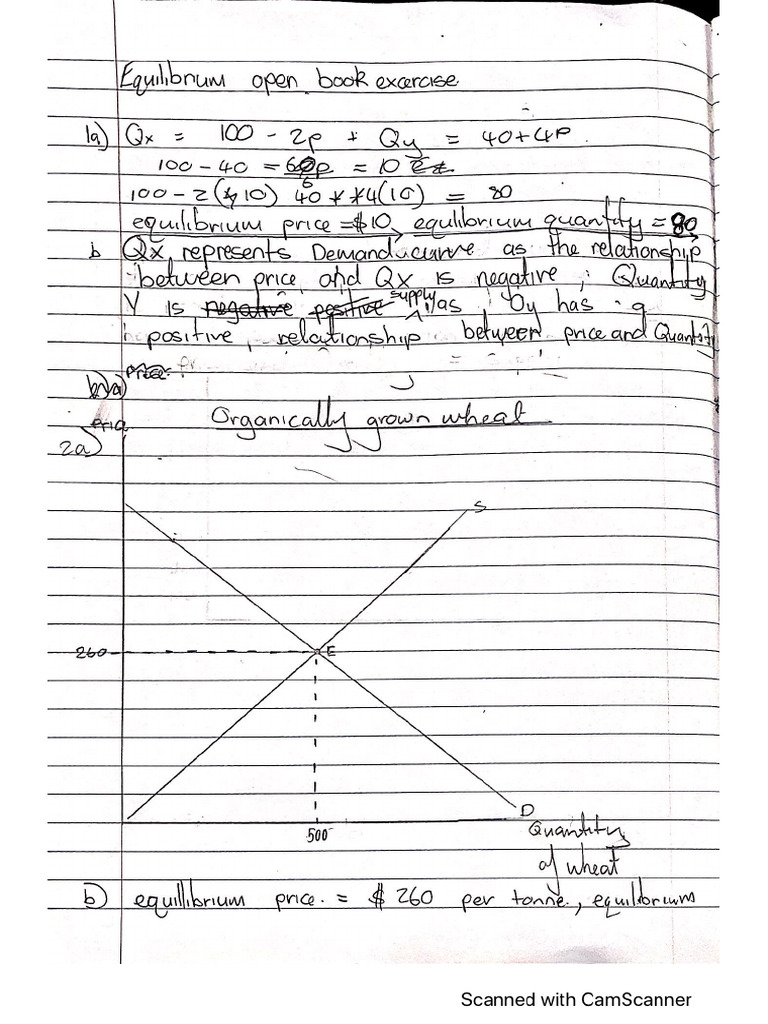 Equilibrium open book excercise
1a) Qx = 100 - 2p + Qy = 40+4P
100 - 40 = 6p = 10
100 - 2(10) 40 4(10) = 80
equilibrium price = $10, equlibrium quantity = 80
b Qx represents Demand curve as the relationship
between price, and Qx is negative; Quantity
Y is negative positive supply, as Qy has a
positive, relationship between price and Quantity
price
Organically grown wheat
2a)
S
260
E
D
500
Quantity
of wheat
b) equillibrium price. = $260 per tonne, equilibrium
Scanned with CamScanner